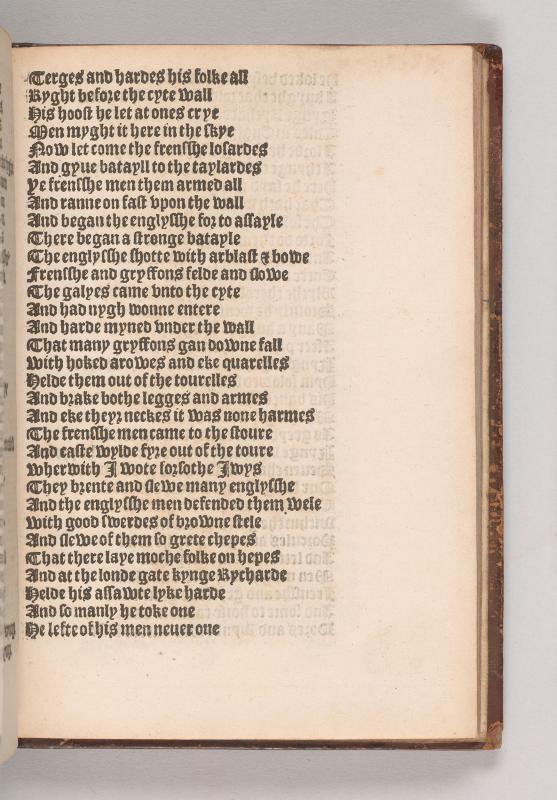 Terges and hardes his folke all
Ryght before the cyte wall
His hoost he let at ones crye
Men myght it here in the skye
Now let come the frensshe losardes
And gyue batayll to the taylardes
Ye frensshe men them armed all
And ranne on fast vpon the wall
And began the englysshe for to assayle
There began a stronge batayle
The englysshe shotte with arblast & bowe
Frensshe and gryffons felde and slowe
The galyes came vnto the cyte
And had nygh wonne entere
And harde myned vnder the wall
That many gryffons gan downe fall
with hoked arowes and eke quarelles
Helde them out of the tourelles
And brake bothe legges and armes
And eke theyr neckes it was none harmes
The frensshe men came to the stoure
And caste wylde fyre out of the toure
wherwith I wote forsothe Iwys
They brente and slewe many englysshe
And the englysshe men defended them wele
with good swerdes of browne stele
And slewe of them so grete chepes
That there laye moche folke on hepes
And at the londe gate kynge Rycharde
Helde his assawte lyke harde
And so manly he toke one
He lefte of his men neuer one